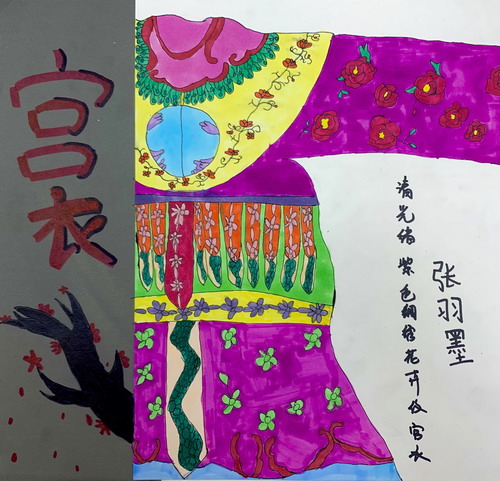 宫衣
清光绪紫色绸绣花卉纹宫衣
张羽墨